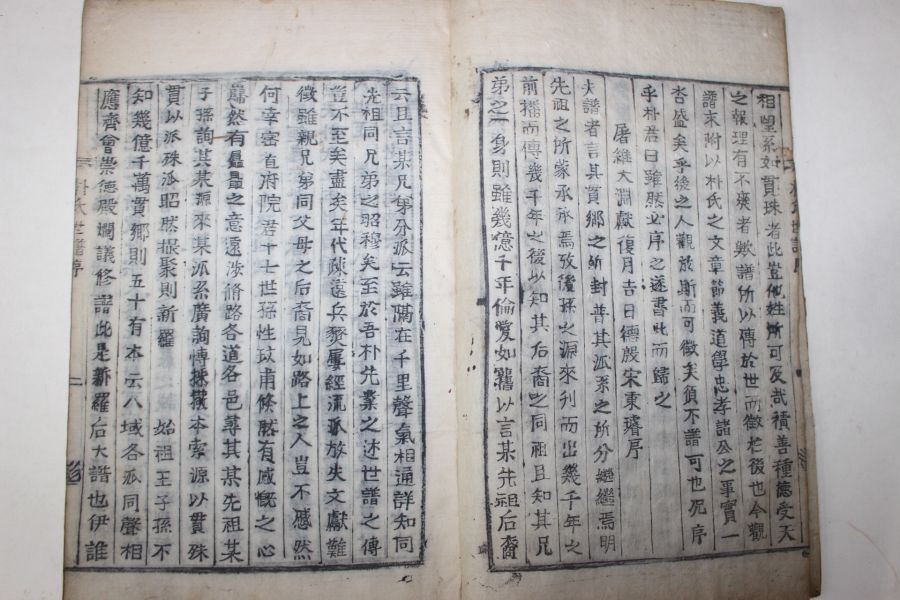 相望系如貫珠者此豈他姓所可及哉積善種德受天
之報理有不爽者歟譜所以傳於世而徵於後也今觀
譜末附以朴氏之文章節義道學忠孝諸公之事實一
何盛矣乎後之人觀於斯而可徵矣負不譜可也況序
乎朴君曰雖然必序之遂書此而歸之
屠維大淵獻復月吉日德殷宋東璿序
夫譜者言其貫鄉之所封普其派系之所分繼繼焉明
先祖之所蒙承承焉致後孫之源來利而出幾千年之
前播而傳幾千年之後以知其后裔之同祖且知其兄
弟之一身則雖幾億千年倫愛如舊以言某先祖后裔
云且言某兄弟分派云雖隔在千里聲氣相通詳知同
先祖同兄弟之昭穆矣至於吾朴先業之述世譜之傳
豈不至矣盡矣年代疎遠兵燹屢經流派放失文獻難
徵雖親兄弟同父母之后裔見如路上之人豈不慼然
何幸密直府院君十七世孫性玟甫倏然有感慨之心
蕭然有矗矗之意遠涉脩路各道各邑尋其某先祖某
子孫詢其某源來某派系廣詢博採撥本索源以貫珠
貫以派殊派昭然撮聚則新羅 始祖王子孫不
知幾億千萬貫鄉則五十有本云八域各派同聲相
應齊會崇德殿爛議修譜此是新羅后大譜也伊誰
朴氏世譜序
二